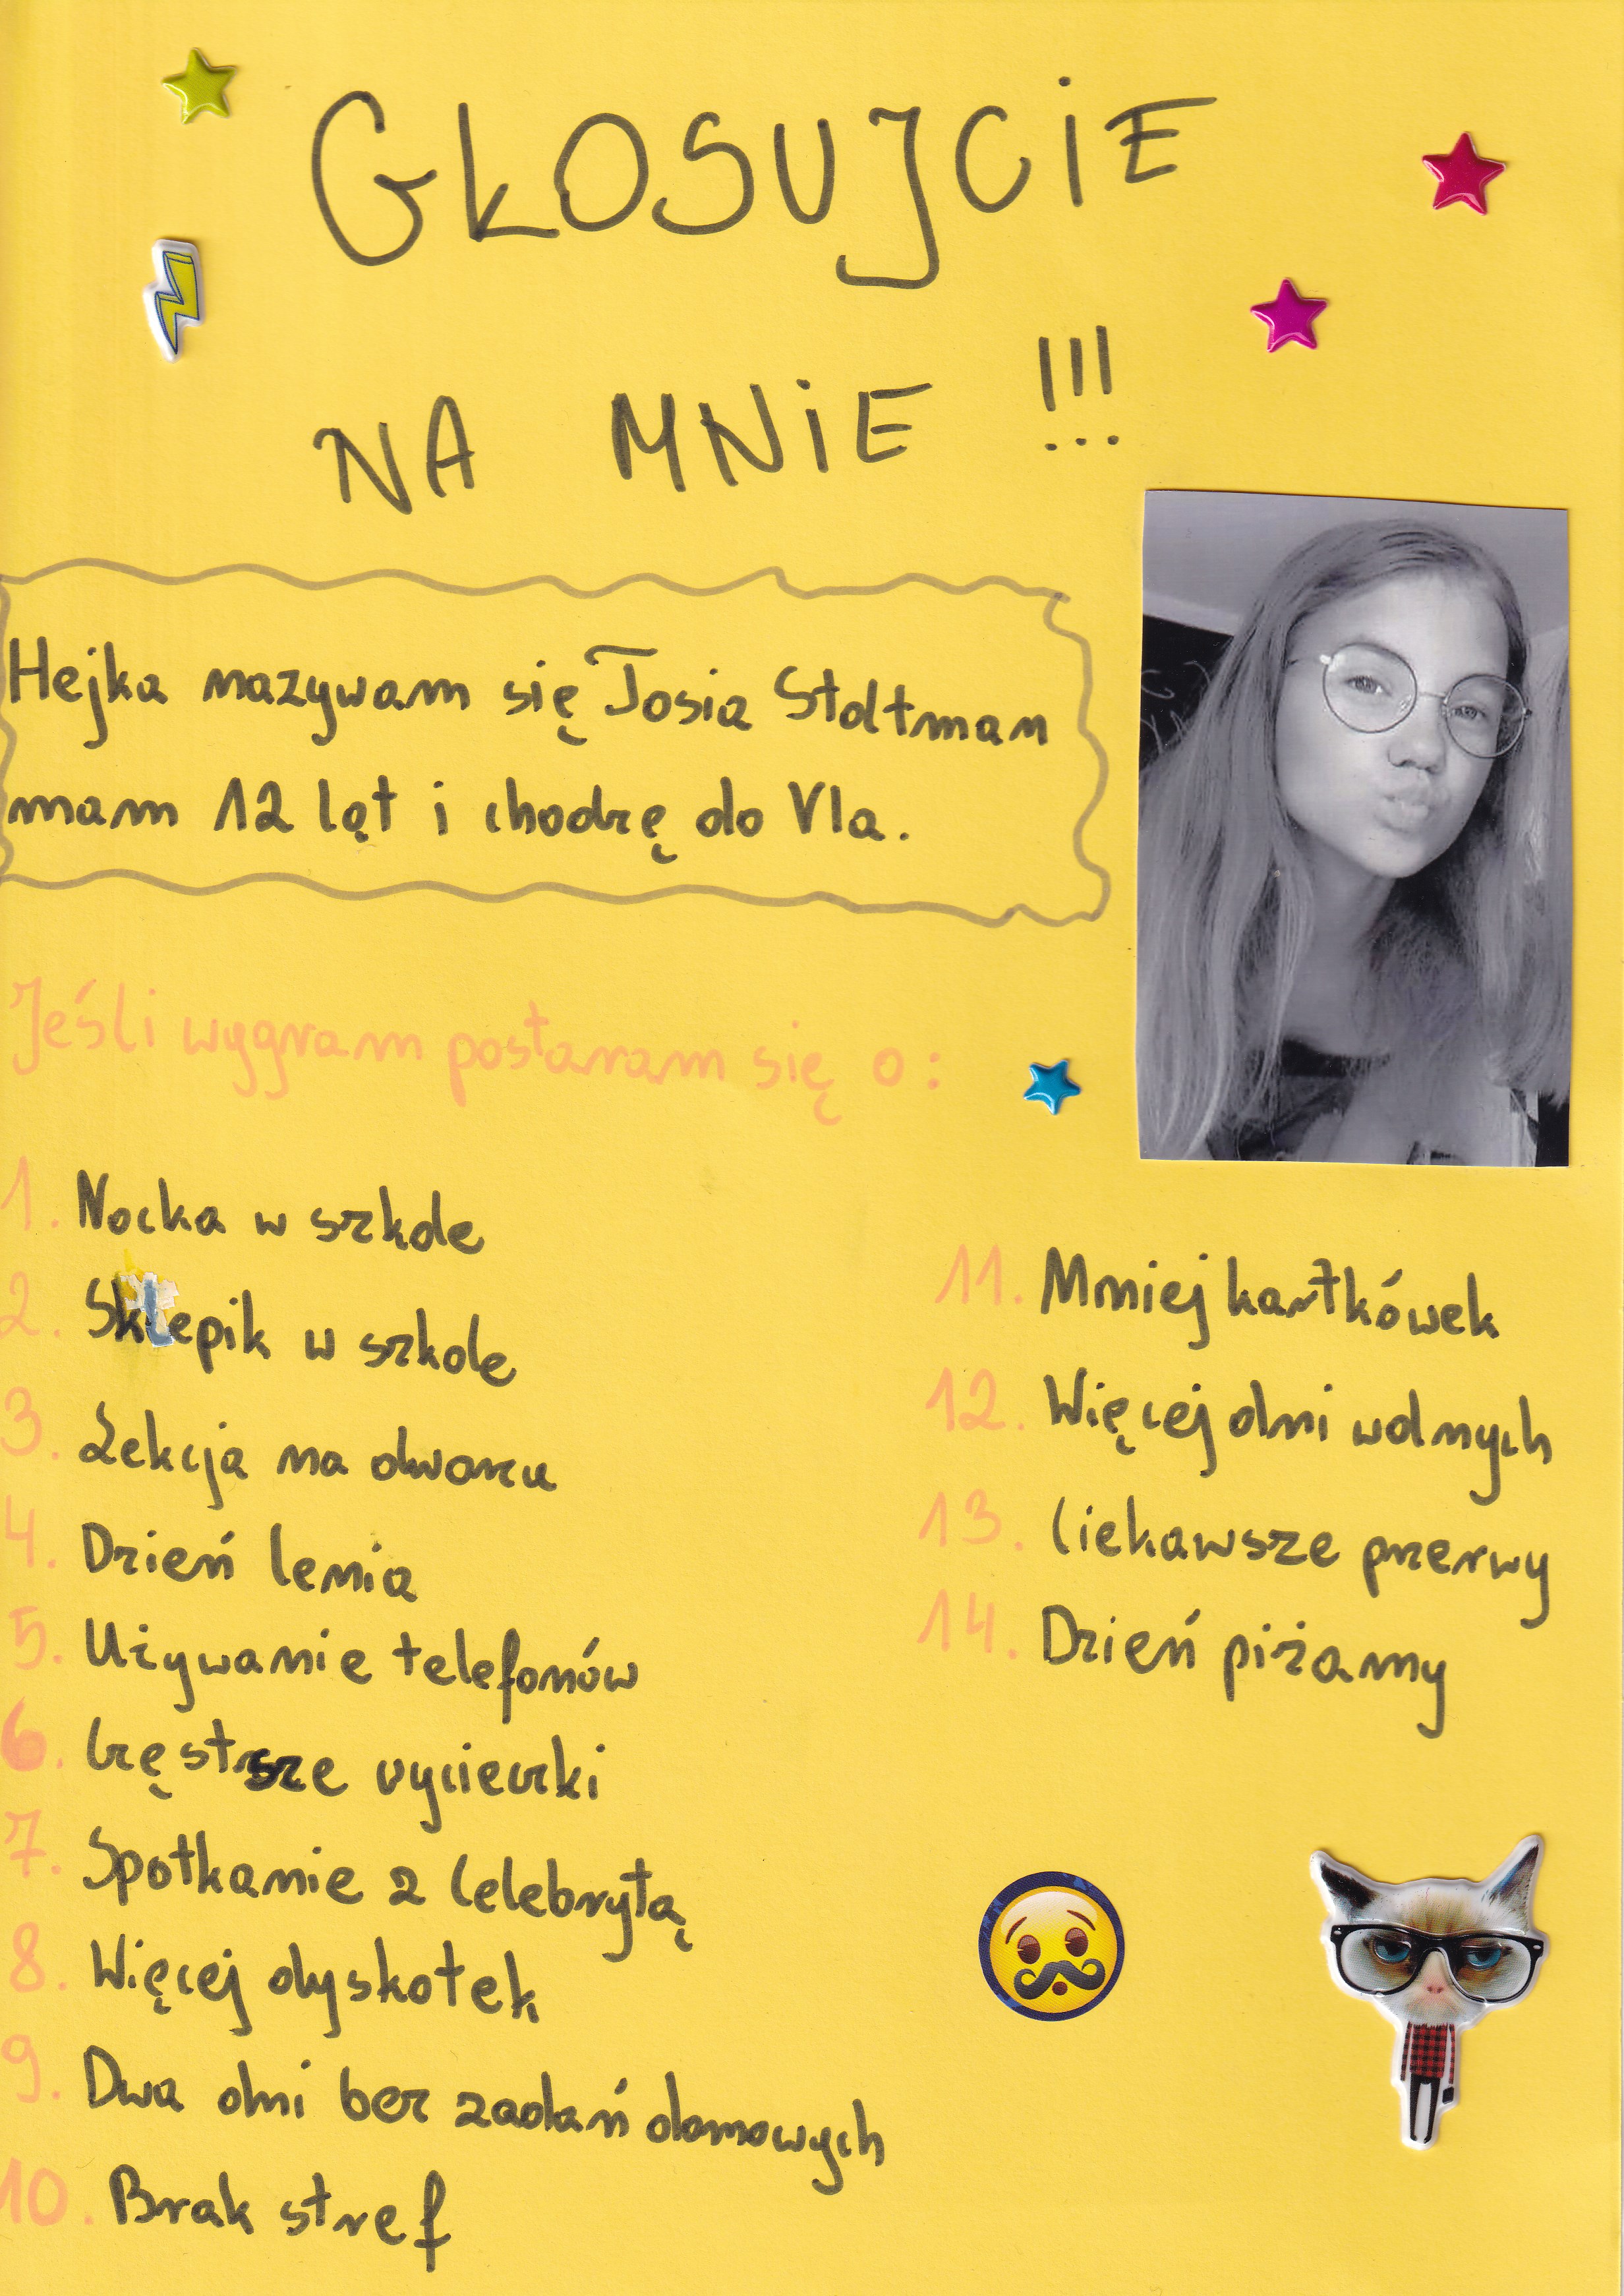 GŁOSUJCiE
NA MNiE !!!
Hejka nazywam się Tosia Stoltman
mam 12 lat i chodzę do VIa.
Jeśli wygram postaram się o:
1. Nocka w szkole
2. Sklepik w szkole
3. Lekcja na dworzu
4. Dzień lenia
5. Używanie telefonów
6. Częstrsze wycieczki
7. Spotkanie z Celebrytą
8. Więcej dyskotek
9. Dwa dni bez zadań domowych
10. Brak stref
11. Mniej kartkówek
12. Więcej dni wolnych
13. Ciekawsze przerwy
14. Dzień piżamy